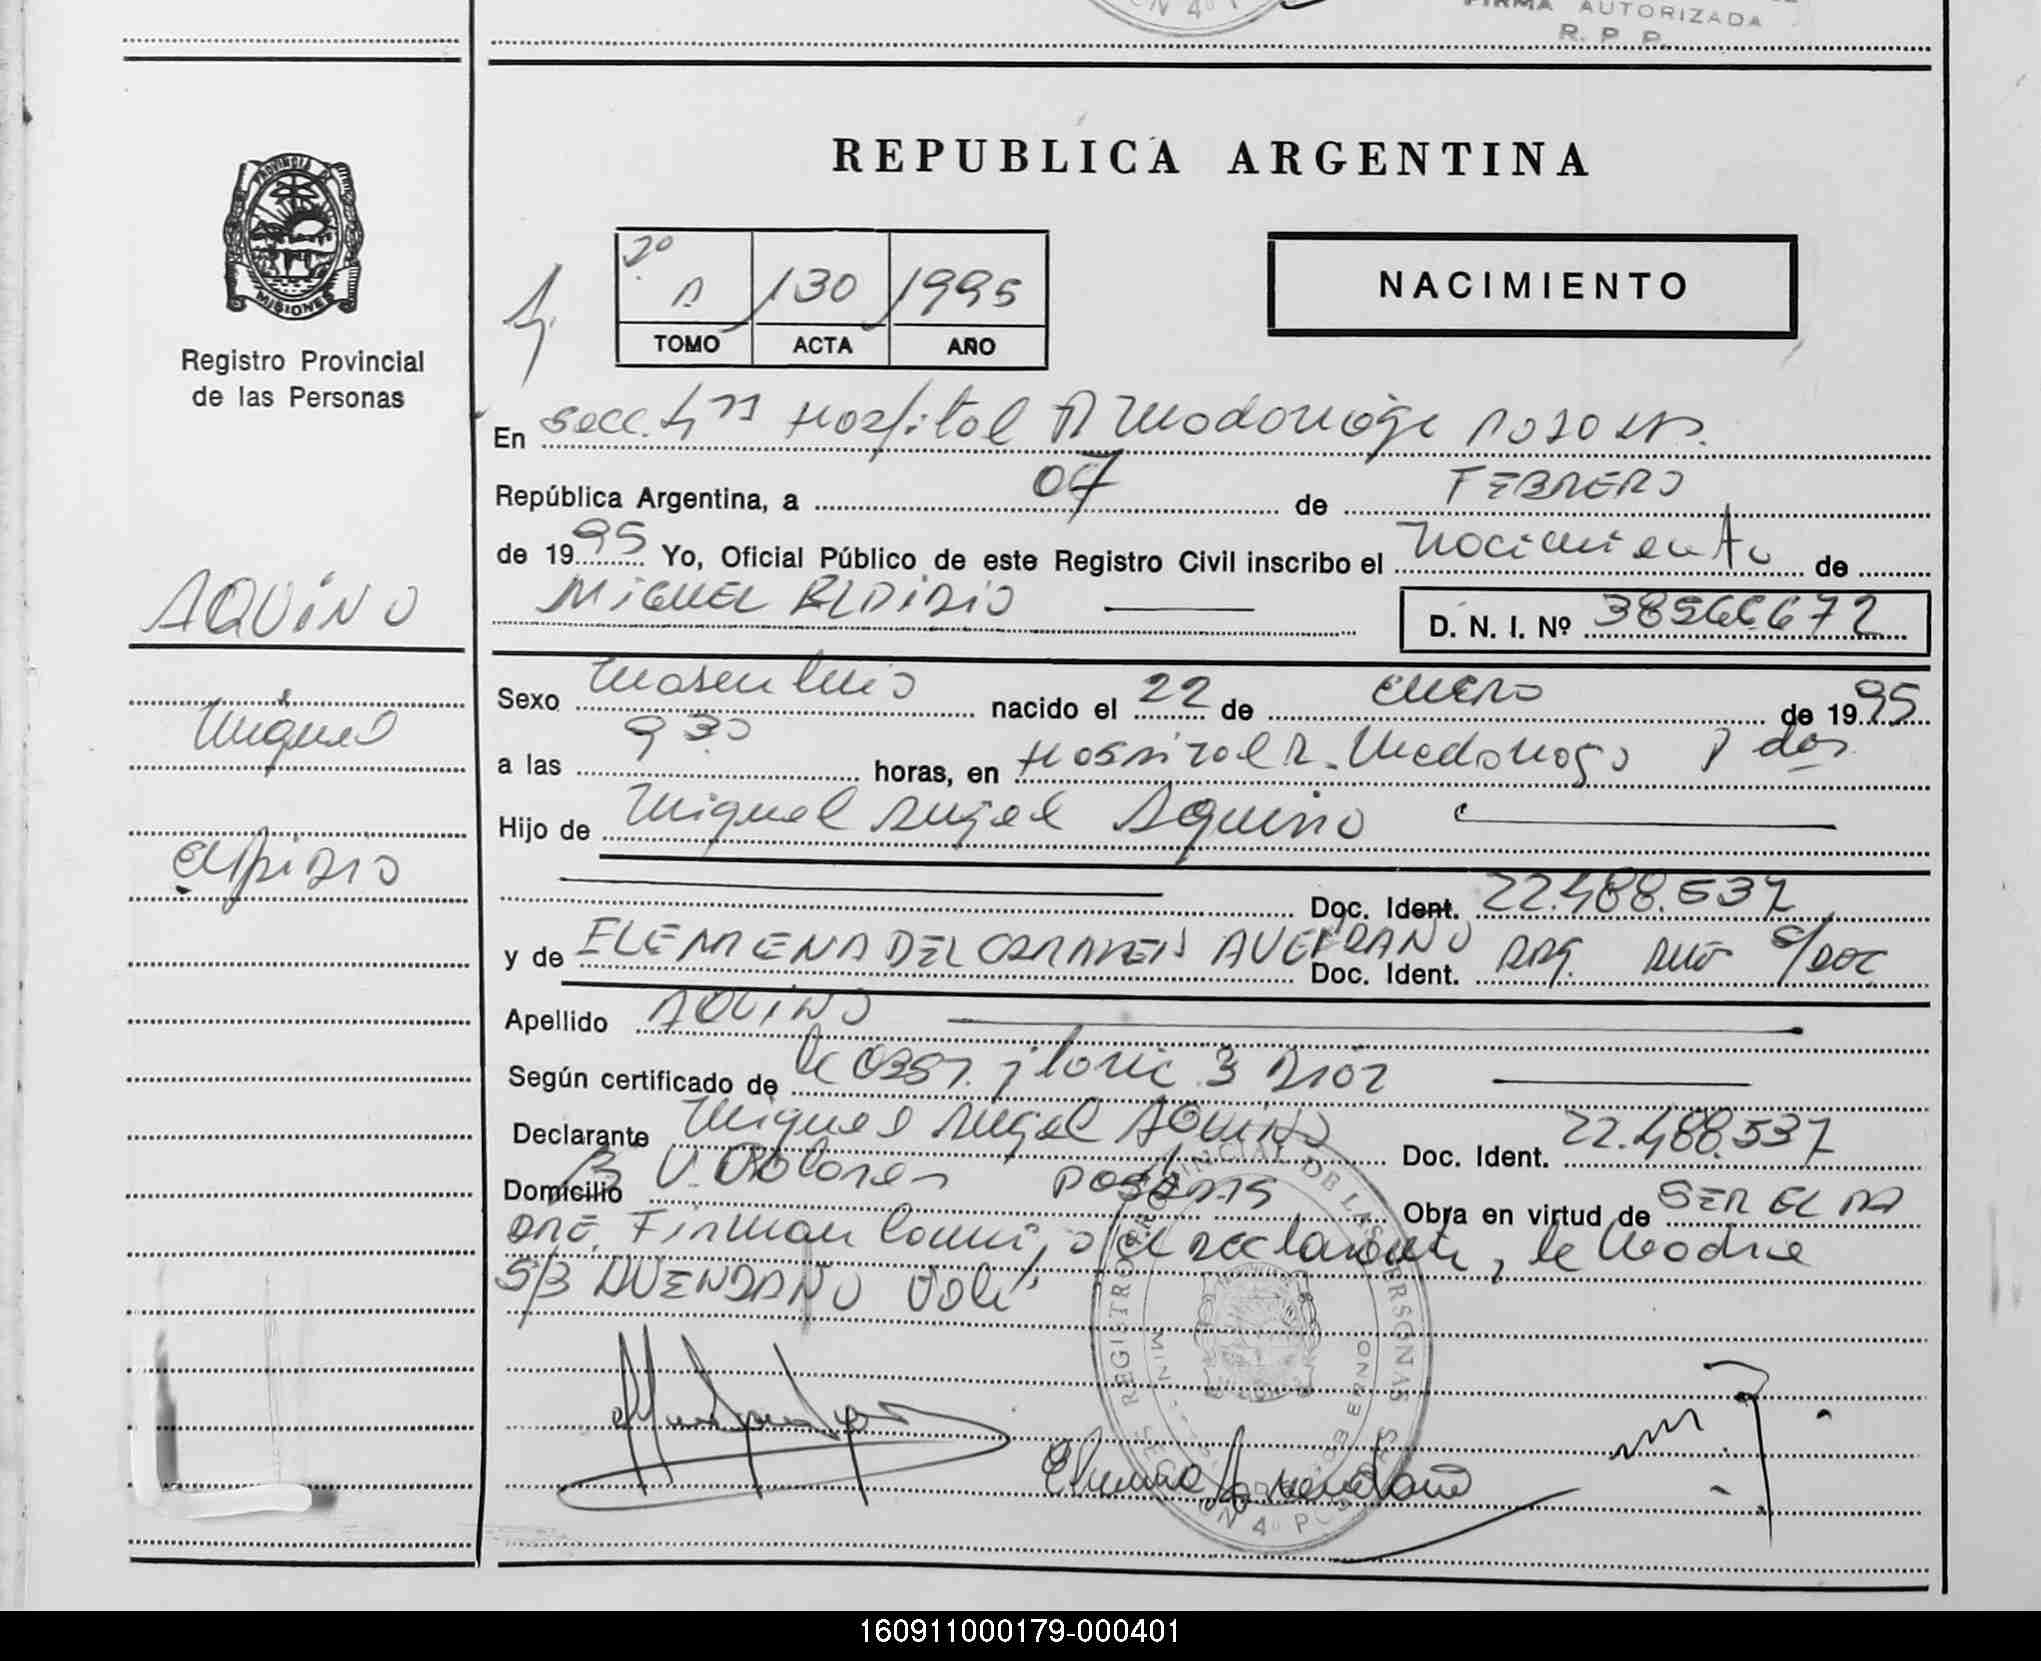 FIRMA AUTORIZADA
R. P. P.
PROVINCIA DE
MISIONES
Registro Provincial
de las Personas
REPUBLICA ARGENTINA
2º A 130 1995
TOMO ACTA AÑO
NACIMIENTO
En secc. 4ta Hospital R Madariaga
República Argentina, a 07 de FEBRERO
de 1995 Yo, Oficial Público de este Registro Civil inscribo el Nacimiento de
MIGUEL ELPIDIO D. N. I. Nº 38566672
AQUINO
Miguel
Elpidio
Sexo Masculino nacido el 22 de enero de 1995
a las 9 30 horas, en Hospital R. Madariaga Pdas
Hijo de Miguel Angel Aquino
Doc. Ident. 22.488.537
y de DEL CARMEN AVENDAÑO Doc. Ident. ARG. S/DOC
Apellido AQUINO
Según certificado de
Declarante Miguel Angel AQUINO Doc. Ident. 22.488.537
Domicilio B V. Dolores POSADAS Obra en virtud de SER EL PA
DRE. Firman conmigo el declarante, la Madre
S/B AVENDAÑO Vale
REGISTRO PROVINCIAL DE LAS PERSONAS
Avendaño
160911000179-000401